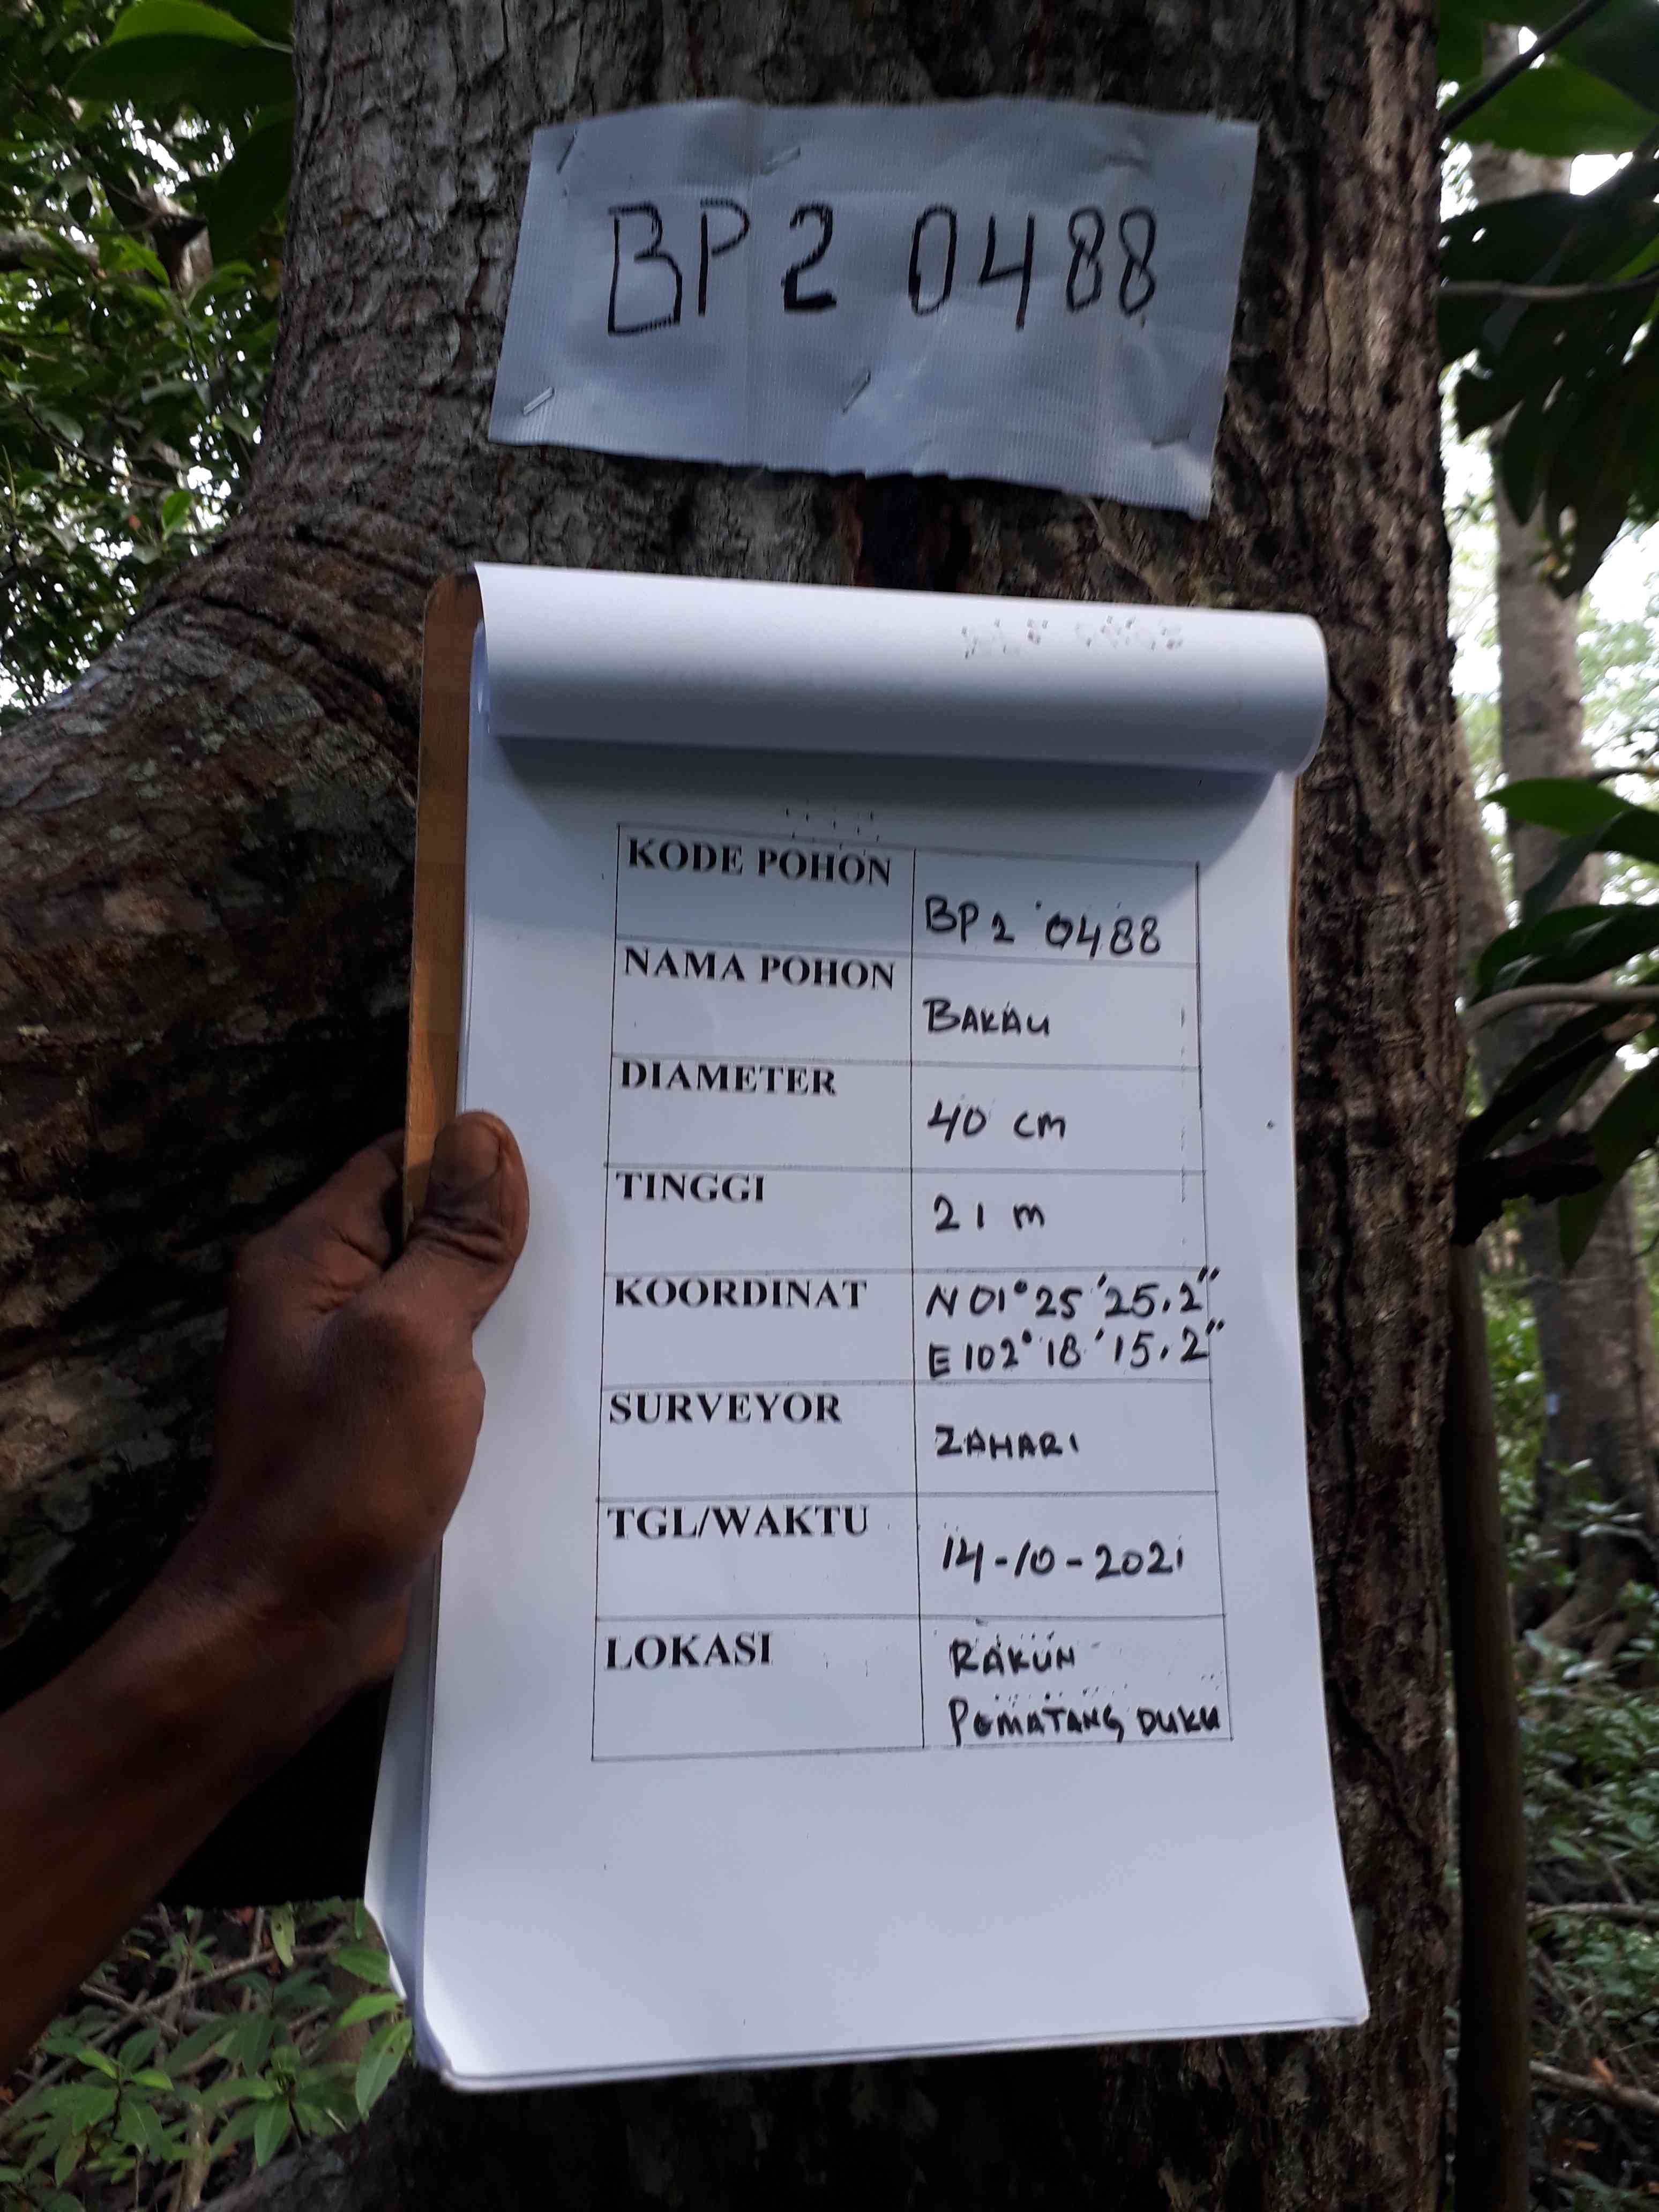 BP2 0488
KODE POHON BP2 0488
NAMA POHON BAKAU
DIAMETER 40 cm
TINGGI 21 m
KOORDINAT N 01°25'25.2"
E 102°18'15.2"
SURVEYOR ZAHARI
TGL/WAKTU 14-10-2021
LOKASI RAKUN
PEMATANG DUKU